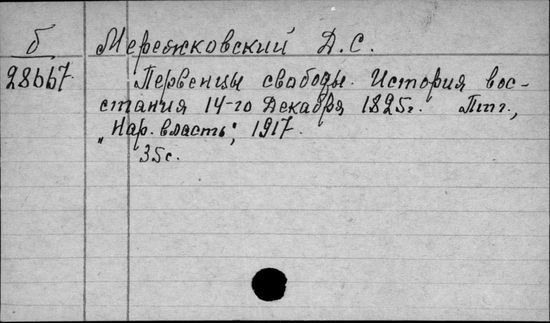 б
28667
Мережковский Д.С.
Первенцы свободы. История вос-
стания 14-го Декабря 1825г. Птг.,
„Нар. власть", 1917.
35с.